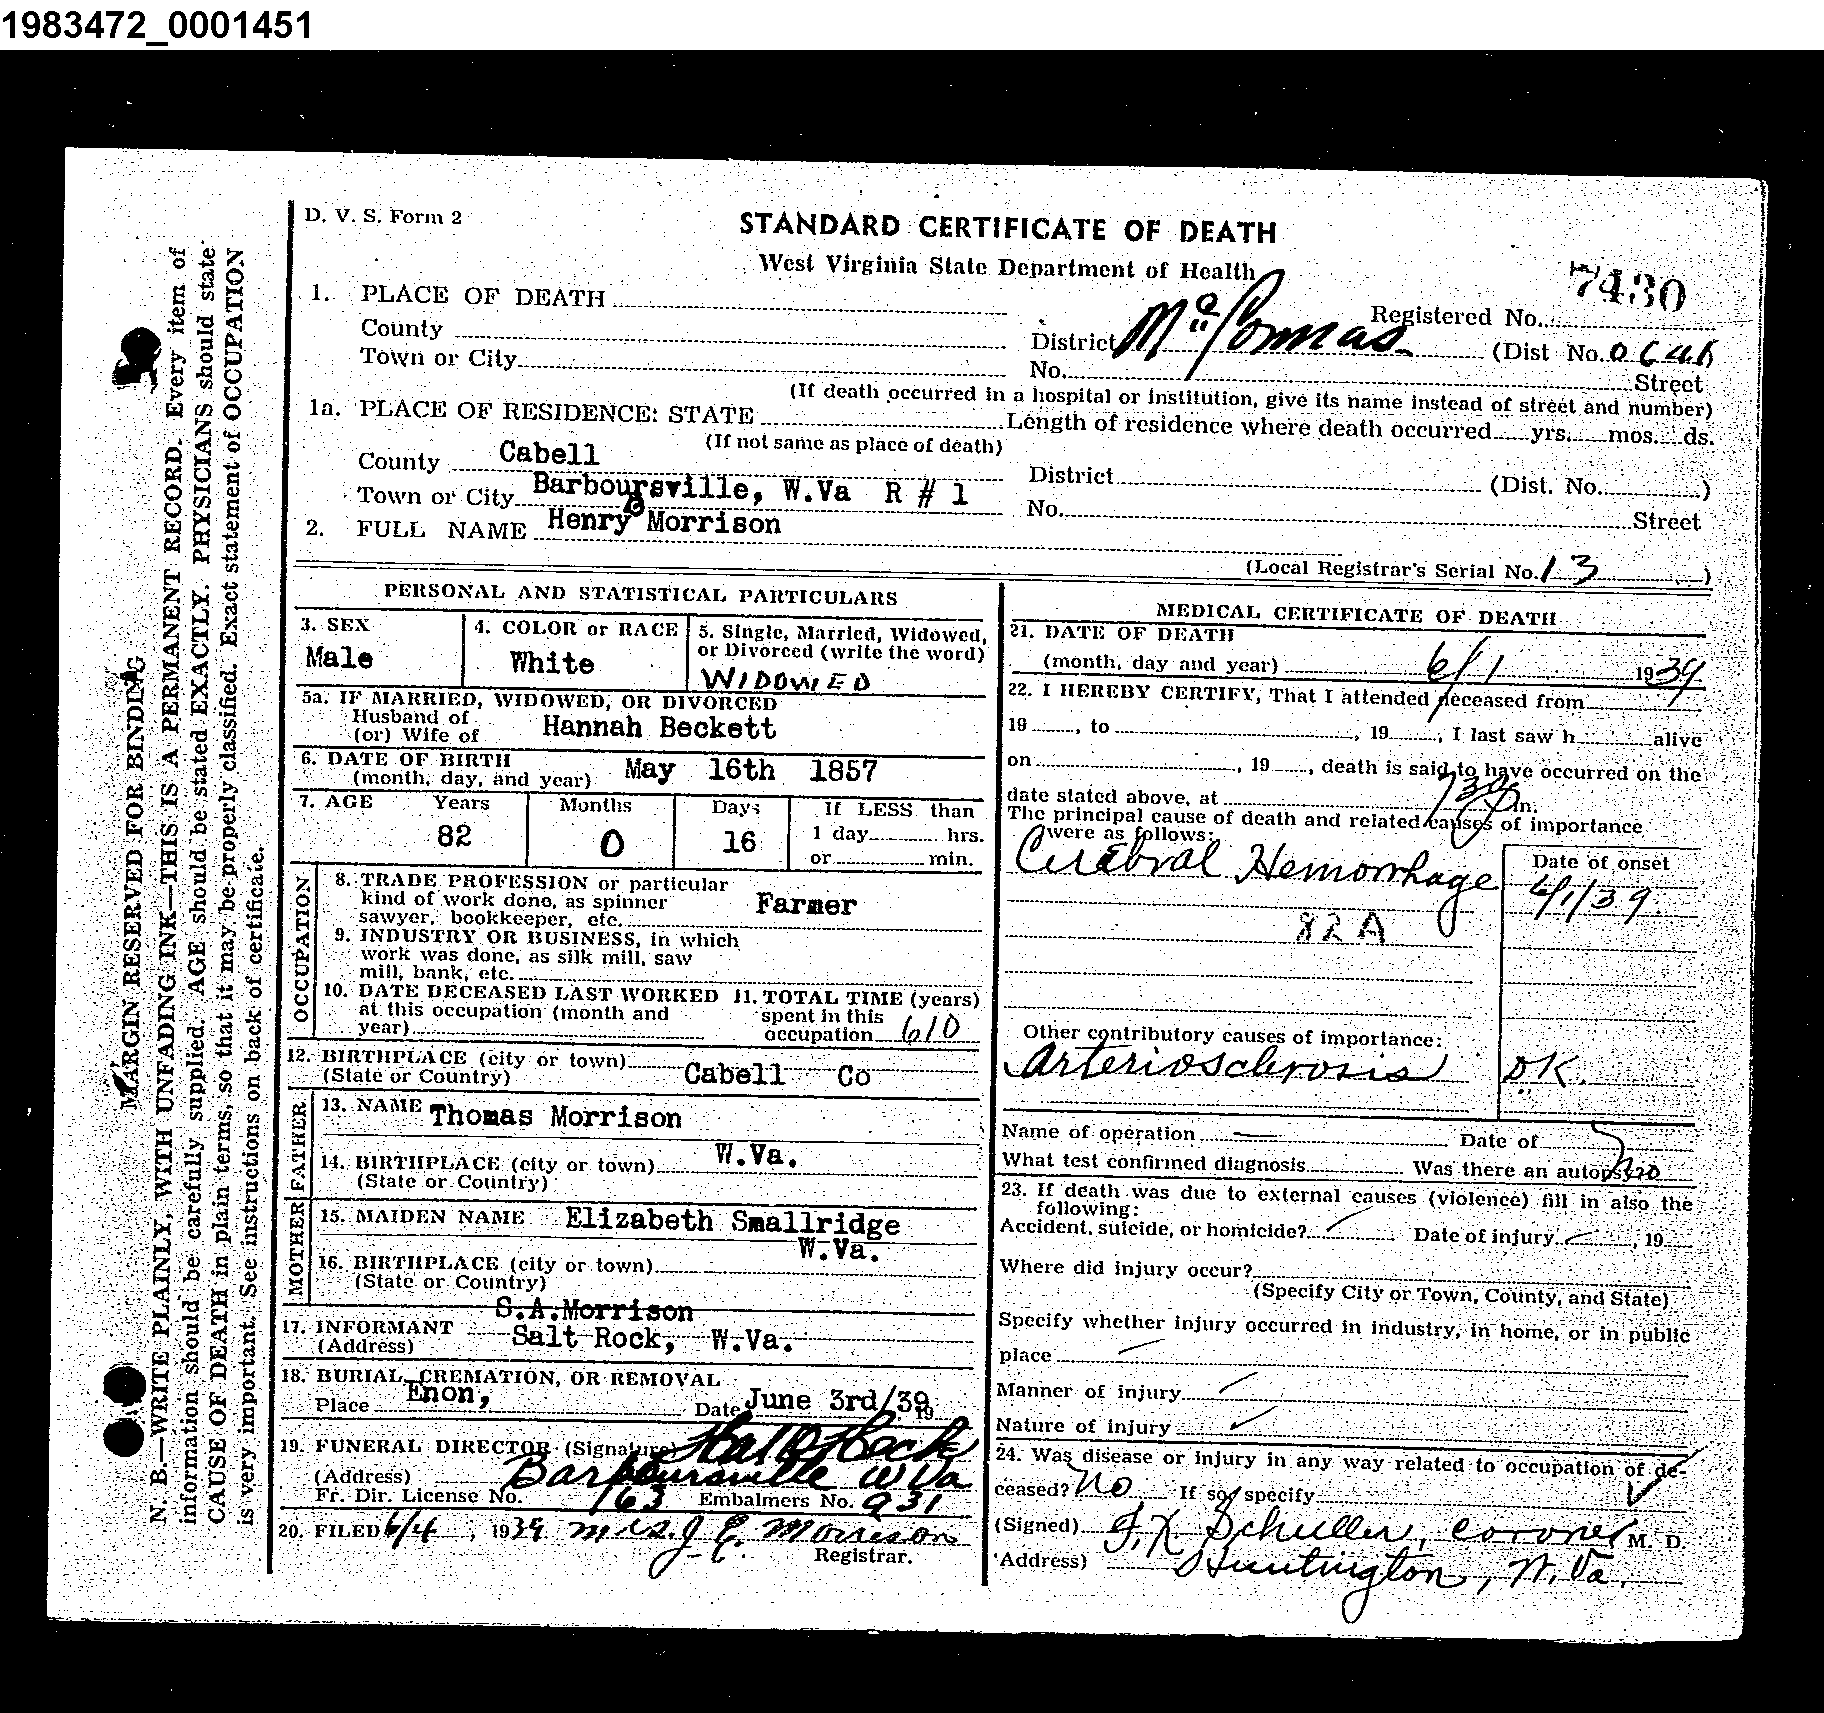 1983472_0001451
D. V. S. Form 2
STANDARD CERTIFICATE OF DEATH
West Virginia State Department of Health
7430
1. PLACE OF DEATH
Registered No.
County
District McComas (Dist No.
Town or City
No. Street
(If death occurred in a hospital or institution, give its name instead of street and number)
1a. PLACE OF RESIDENCE: STATE Length of residence where death occurred yrs. mos. ds.
(If not same as place of death)
County Cabell
District (Dist. No. )
Town or City Barboursville, W.Va R # 1
No. Street
2. FULL NAME Henry Morrison
(Local Registrar's Serial No. 13 )
PERSONAL AND STATISTICAL PARTICULARS
3. SEX
Male
4. COLOR or RACE
White
5. Single, Married, Widowed,
or Divorced (write the word)
WIDOWED
5a. IF MARRIED, WIDOWED, OR DIVORCED
Husband of
(or) Wife of Hannah Beckett
6. DATE OF BIRTH
(month, day, and year) May 16th 1857
7. AGE Years Months Days If LESS than
82 0 16 1 day hrs.
or min.
OCCUPATION
8. TRADE PROFESSION or particular
kind of work done, as spinner
sawyer, bookkeeper, etc. Farmer
9. INDUSTRY OR BUSINESS, in which
work was done, as silk mill, saw
mill, bank, etc.
10. DATE DECEASED LAST WORKED
at this occupation (month and
year)
11. TOTAL TIME (years)
spent in this
occupation
12. BIRTHPLACE (city or town)
(State or Country) Cabell Co
FATHER
13. NAME Thomas Morrison
14. BIRTHPLACE (city or town) W.Va.
(State or Country)
MOTHER
15. MAIDEN NAME Elizabeth Smallridge
W.Va.
16. BIRTHPLACE (city or town)
(State or Country)
S.A.Morrison
17. INFORMANT Salt Rock, W.Va.
(Address)
18. BURIAL, CREMATION, OR REMOVAL
Place Enon, Date June 3rd/39 19
19. FUNERAL DIRECTOR (Signature)
(Address) Barboursville W Va
Fr. Dir. License No. 163 Embalmers No. 931
20. FILED 6/4, 1939 Mrs. J. E. Morrison
Registrar.
MEDICAL CERTIFICATE OF DEATH
21. DATE OF DEATH
(month, day and year) 6/1 1939
22. I HEREBY CERTIFY, That I attended deceased from
19 , to , 19 , I last saw h alive
on , 19 , death is said to have occurred on the
date stated above, at m.
The principal cause of death and related causes of importance
were as follows:
Cerebral Hemorrhage
Date of onset
6/1/39.
82 A
Other contributory causes of importance:
Arteriosclerosis DK.
Name of operation — Date of
What test confirmed diagnosis Was there an autopsy no
23. If death was due to external causes (violence) fill in also the
following:
Accident, suicide, or homicide? Date of injury , 19
Where did injury occur?
(Specify City or Town, County, and State)
Specify whether injury occurred in industry, in home, or in public
place
Manner of injury
Nature of injury
24. Was disease or injury in any way related to occupation of de-
ceased? No If so, specify
(Signed) Schuller, coroner M. D.
(Address) Huntington, W. Va.
MARGIN RESERVED FOR BINDING
N. B.—WRITE PLAINLY, WITH UNFADING INK—THIS IS A PERMANENT RECORD. Every item of
information should be carefully supplied. AGE should be stated EXACTLY. PHYSICIANS should state
CAUSE OF DEATH in plain terms, so that it may be properly classified. Exact statement of OCCUPATION
is very important. See instructions on back of certificate.